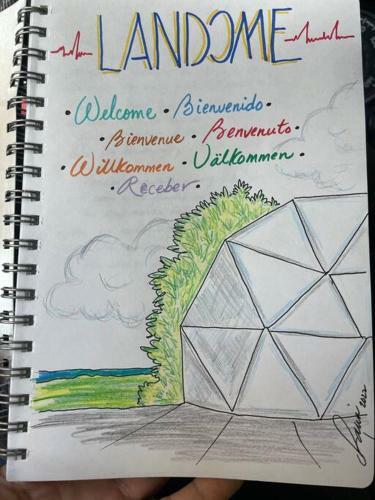 LANDOME
• Welcome • Bienvenido •
• Bienvenue • Benvenuto •
• Willkommen • Välkommen •
• Receber •